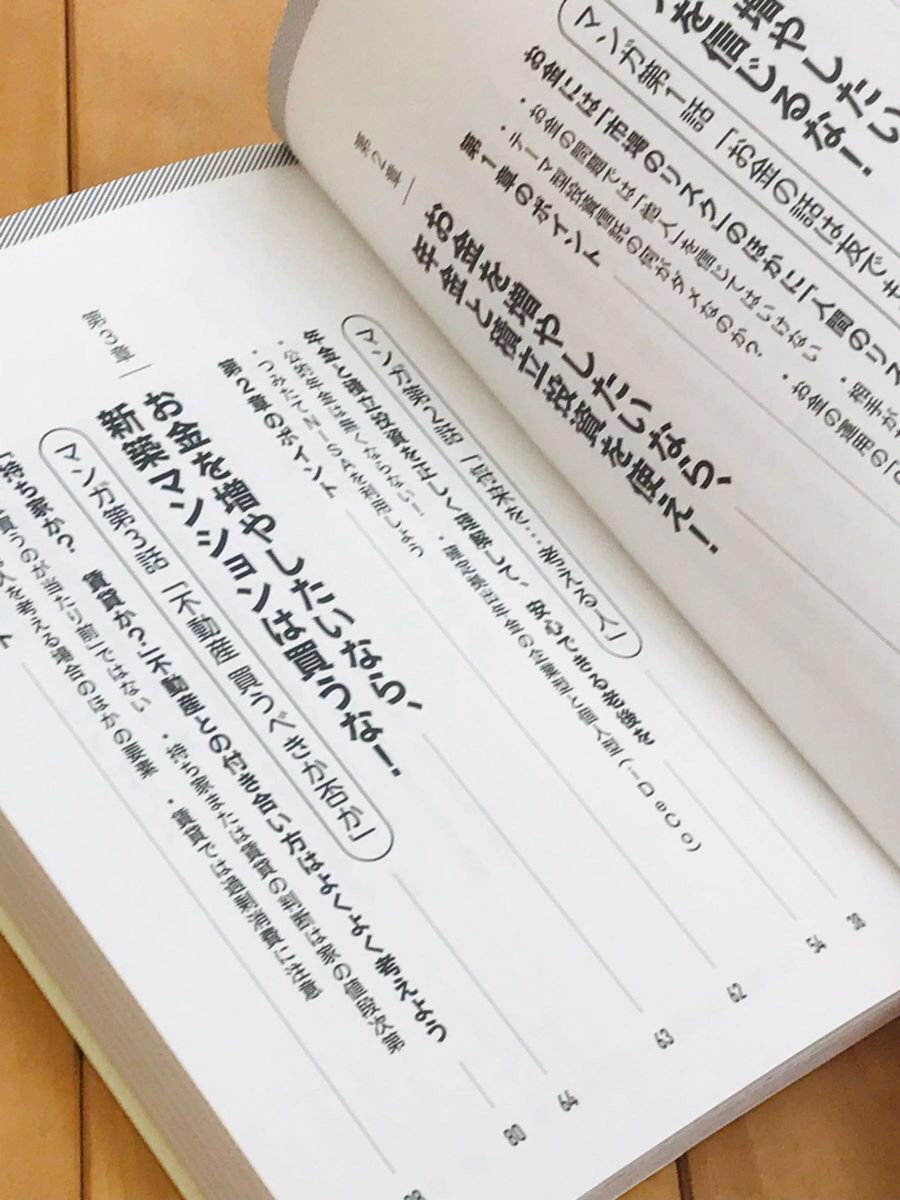 増やしたい
を信じるな！
マンガ第1話「お金の話は友で
お金には「市場のリスク」のほかに「人間のリス
・お金の問題では「他人」を信じてはいけない　・相手が
・テーマ型投資信託の何がダメなのか？　・お金の運用の
第1章のポイント
第2章
お金を増やしたいなら、
年金と積立投資を使え！
マンガ第2話「将来を…考える人」
年金と積立投資を正しく理解して、安心できる老後を
・公的年金は無くならない！　・確定拠出年金の企業型と個人型（iDeCo）
・つみたてNISAを利用しよう
第2章のポイント
第3章
お金を増やしたいなら、
新築マンションは買うな！
マンガ第3話「不動産 買うべきか否か」
「持ち家か？　賃貸か？」不動産との付き合い方はよくよく考えよう
買うのが当たり前」ではない　・持ち家または賃貸の判断は家の値段次第
を考える場合のほかの要素　・賃貸では過剰消費に注意
ト
38
54
62
63
64
80